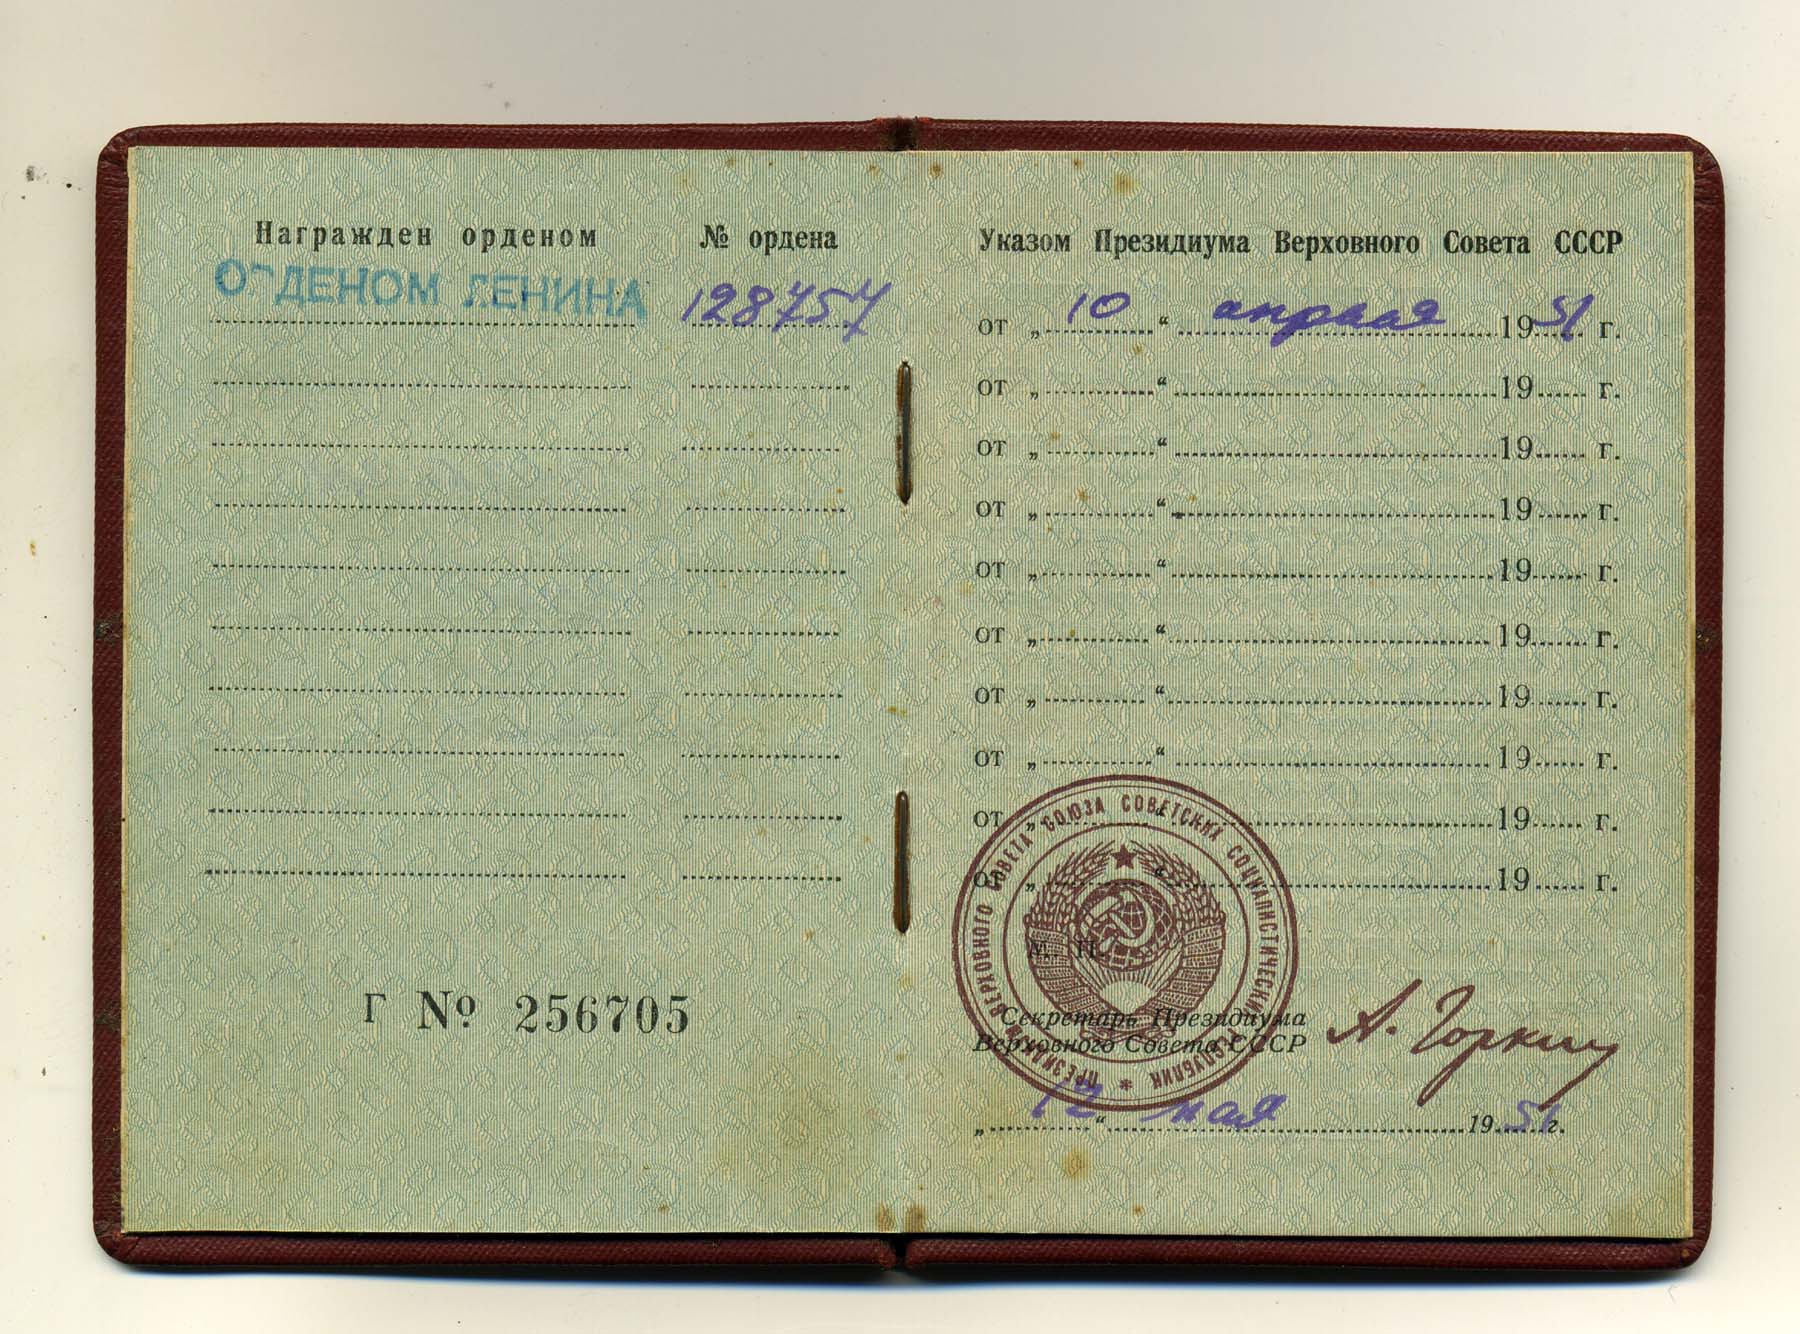 Награжден орденом № ордена
ОРДЕНОМ ЛЕНИНА 128757
Г № 256705
Указом Президиума Верховного Совета СССР
от „ 10 “ апреля 1951 г.
от „ “ 19 г.
от „ “ 19 г.
от „ “ 19 г.
от „ “ 19 г.
от „ “ 19 г.
от „ “ 19 г.
от „ “ 19 г.
от „ “ 19 г.
от „ “ 19 г.
ПРЕЗИДИУМ ВЕРХОВНОГО СОВЕТА СОЮЗА СОВЕТСКИХ СОЦИАЛИСТИЧЕСКИХ РЕСПУБЛИК *
М. П.
Секретарь Президиума
Верховного Совета СССР А. Горкин
„ 12 “ мая 1951 г.